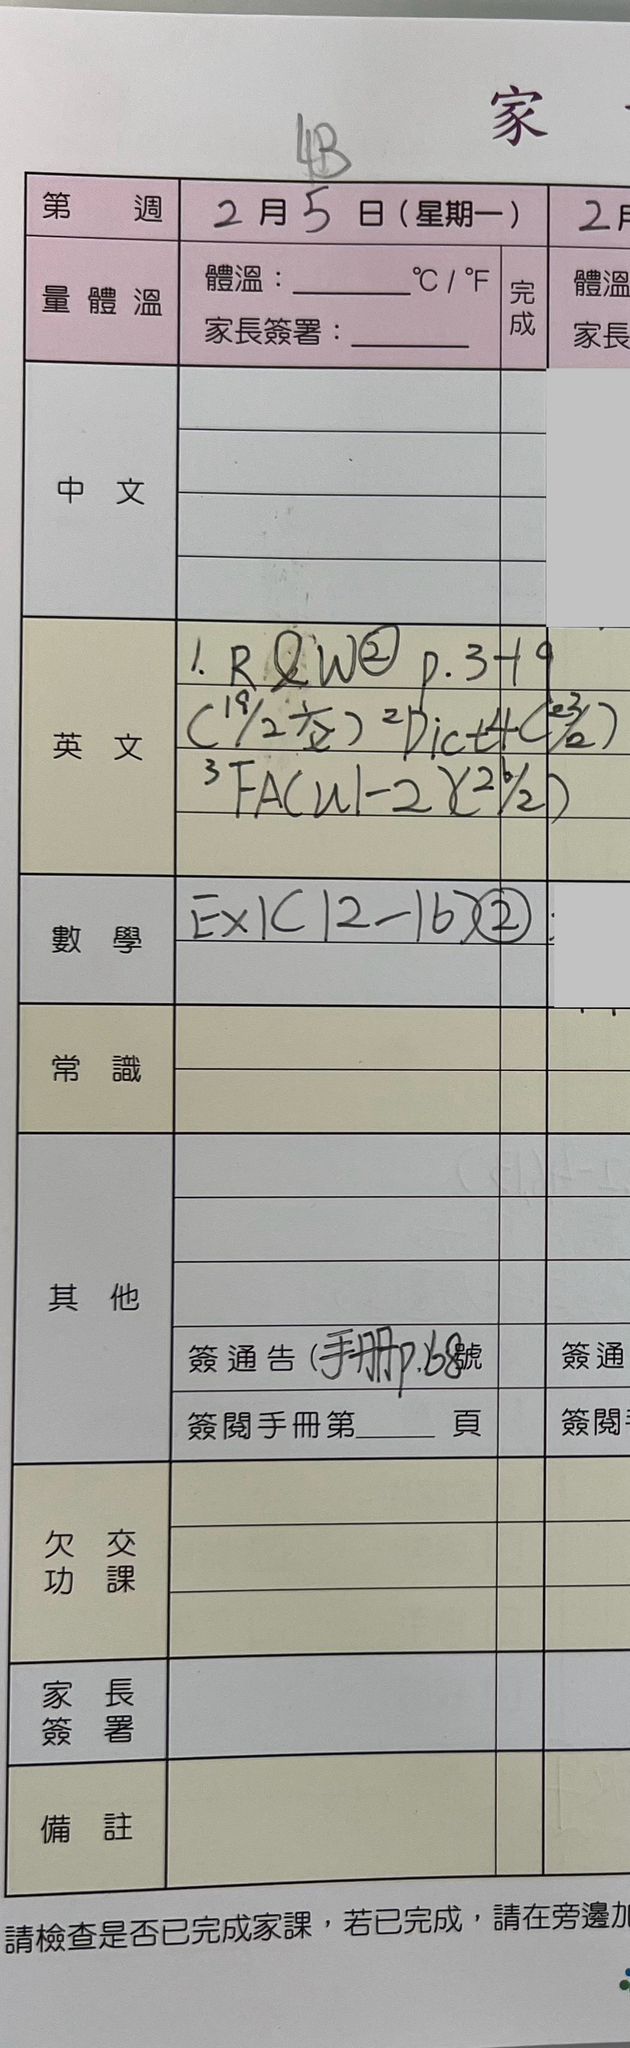 4B
家
第 週 2月5日（星期一） 2月
量體溫 體溫：______℃/℉ 完成 體溫
家長簽署：______ 家長
中文
英文 1. R & W② p.3-19
(19/2交) 2 Dict 4 (23/2)
3 FA(U1-2)(26/2)
數學 Ex1C(12-16)②
常識
其他
簽通告（手冊p.68號 簽通
簽閱手冊第____頁 簽閱
欠交功課
家長簽署
備註
請檢查是否已完成家課，若已完成，請在旁邊加